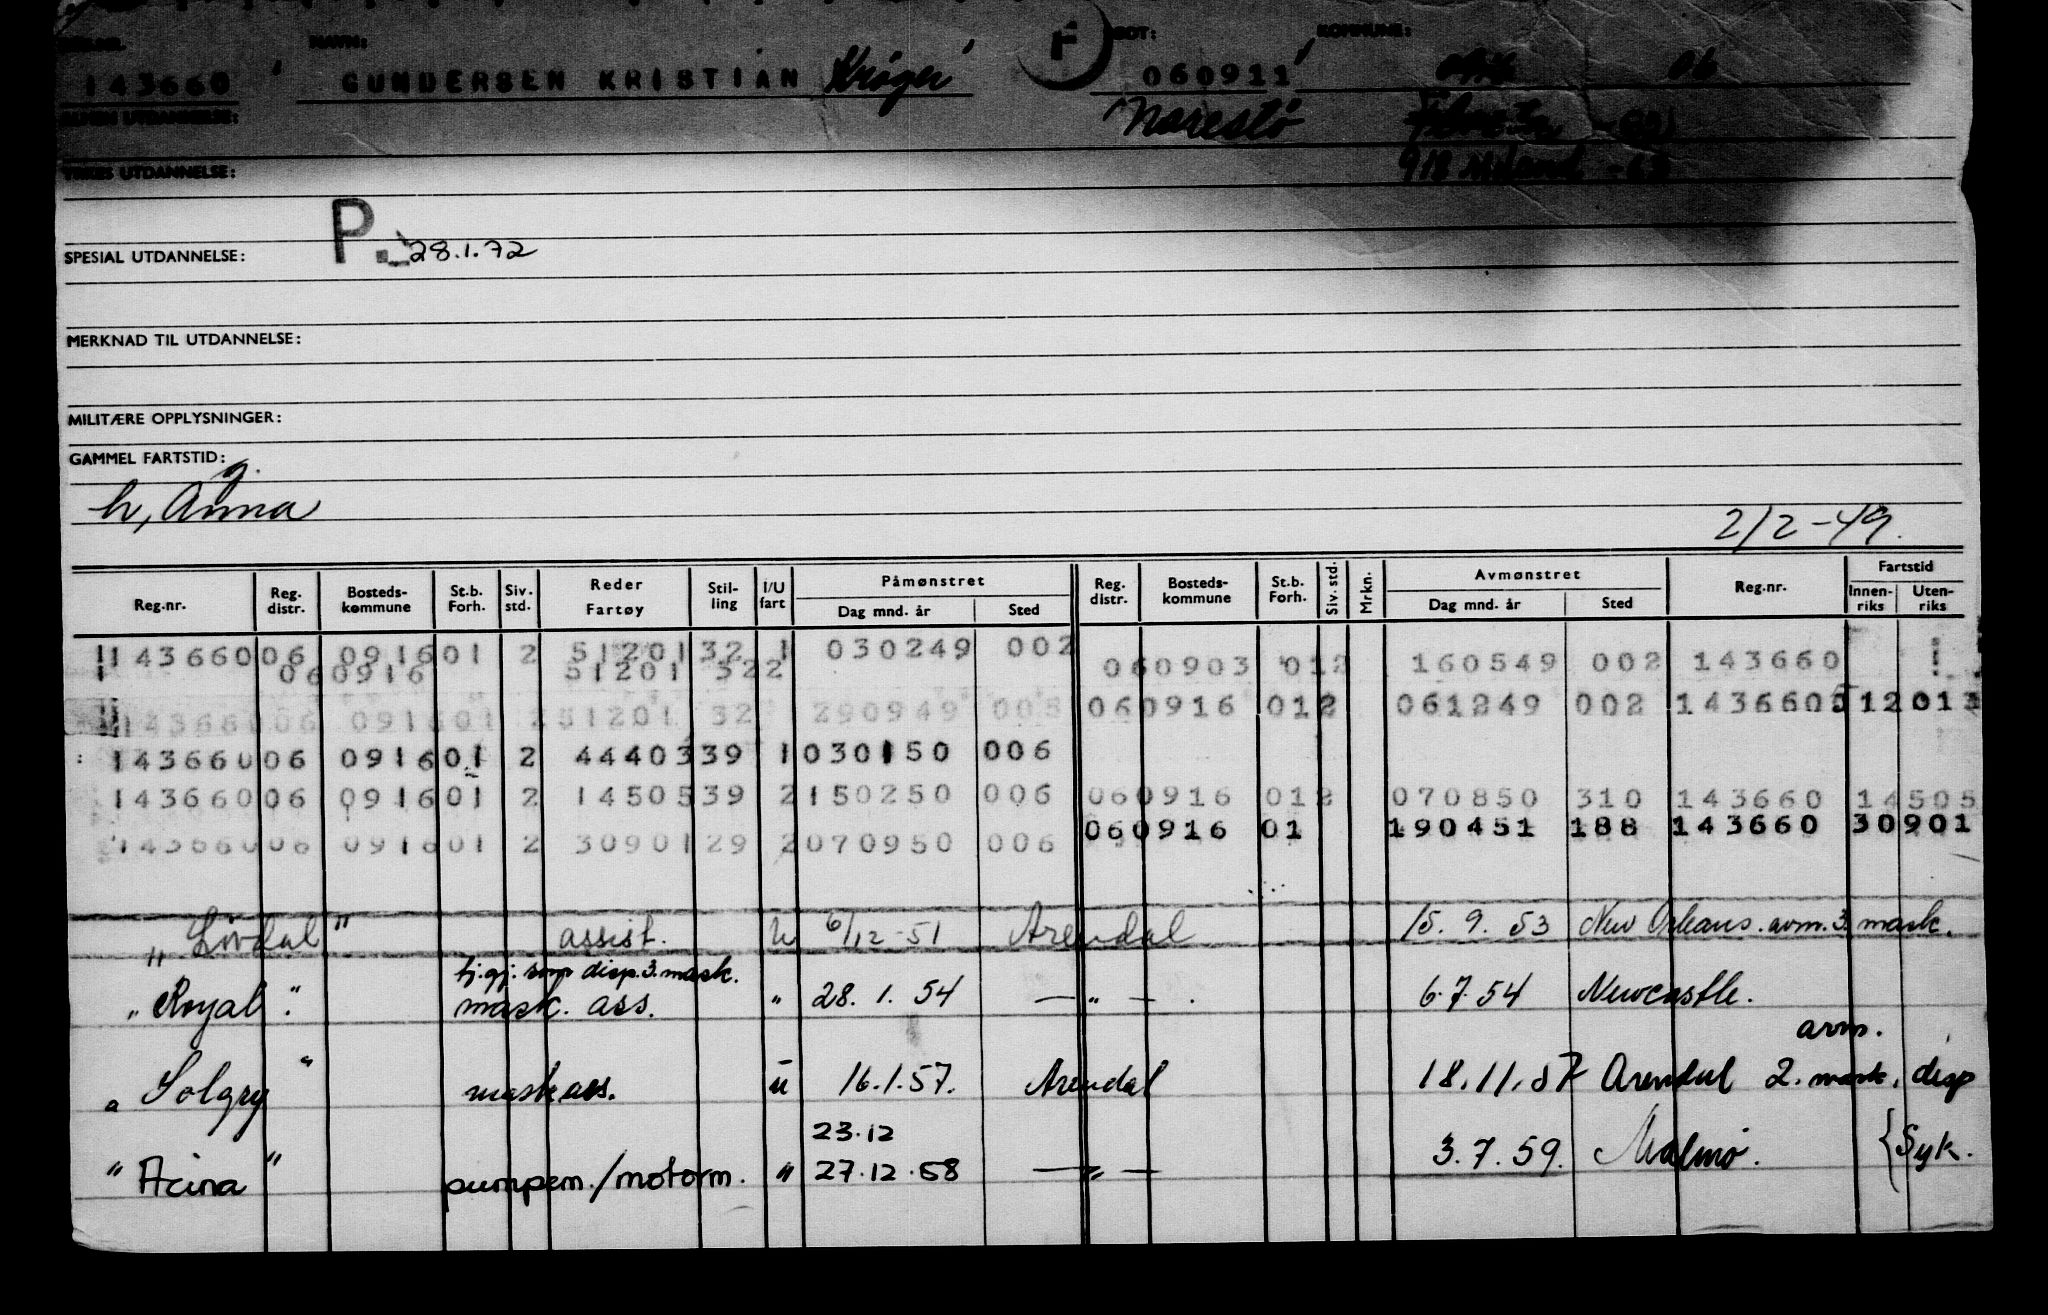 NAVN: FØDT: KOMMUNE:
143660 GUNDERSEN KRISTIAN Krøger 060911 06
ALMEN UTDANNELSE: Narestø
YRKES UTDANNELSE: 918 Moland - 63
P. 28.1.72
SPESIAL UTDANNELSE:
MERKNAD TIL UTDANNELSE:
MILITÆRE OPPLYSNINGER:
GAMMEL FARTSTID:
g.
h, Anna 2/2-49.
Reg.nr. Reg. distr. Bosteds-kommune St.b. Forh. Siv. std. Reder Fartøy Stil-ling I/U fart Påmønstret Dag mnd. år Sted Reg. distr. Bosteds-kommune St.b. Forh. Siv. std. Mrkn. Avmønstret Dag mnd. år Sted Reg.nr. Fartstid Innen-riks Uten-riks
143660 06 0916 01 2 51201 32 1 030249 002 06 0903 01 2 160549 002 143660
06 0916 51201 32 2
143660 06 0916 01 2 51201 32 290949 005 06 0916 01 2 061249 002 143660 12 013
143660 06 0916 01 2 44403 39 1 030150 006
143660 06 0916 01 2 14505 39 2 150250 006 06 0916 01 2 070850 310 143660 14505
06 0916 01 190451 188 143660 30901
143660 06 0916 01 2 30901 29 2 070950 006
" Lørdal " assist. u 6/12-51 Arendal 15.9.53 New Orleans. avm. 3. mask.
tj.gj. som disp. 3. mask.
" Royal " mask. ass. " 28.1.54 — " — 6.7.54 Newcastle.
avm.
" Solgry " mask ass. u 16.1.57. Arendal 18.11.57 Arendal 2. mask. disp
23.12
" Acina " pumpem./motorm. " 27.12.58 — " — 3.7.59. Malmö. {Syk.